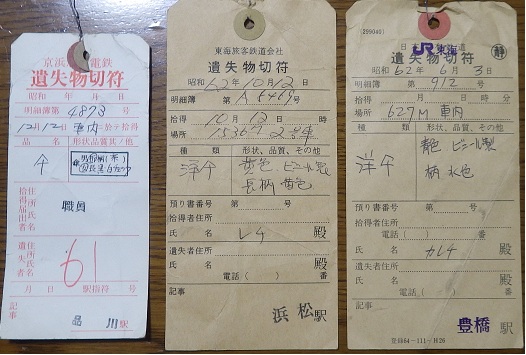 京浜 電鉄
遺失物切符
昭和 年 月 日
明細簿第 4873 号
12月12日 車内 於テ拾得
品名 形状品質其ノ他
職員
拾得届出者
住所
氏名
遺失者
住所
氏名
61
月 日 駅捨符 号
記事
品川駅
東海旅客鉄道会社
遺失物切符
昭和 62年 10月 12日
明細簿 第 A5469 号
拾得 10月 12日 時 分
場所 1536T 2号車
種類 形状、品質、その他
洋傘 黄色 ビニール製
長柄 黄色
預り書番号 第 号
拾得者住所
氏名 レチ 殿
遺失者住所
氏名 殿
電話( ) 番
記事
浜松駅
(29904の)
JR東海
静
遺失物切符
昭和 62年 6月 3日
明細簿 第 912 号
拾得 月 日 時 分
場所 627M 車内
種類 形状、品質、その他
洋傘 青色 ビニール製
柄 水色
預り書番号 第 号
拾得者住所
電話( ) 番
氏名 カレチ 殿
遺失者住所
氏名 殿
電話( ) 番
記事
豊橋駅